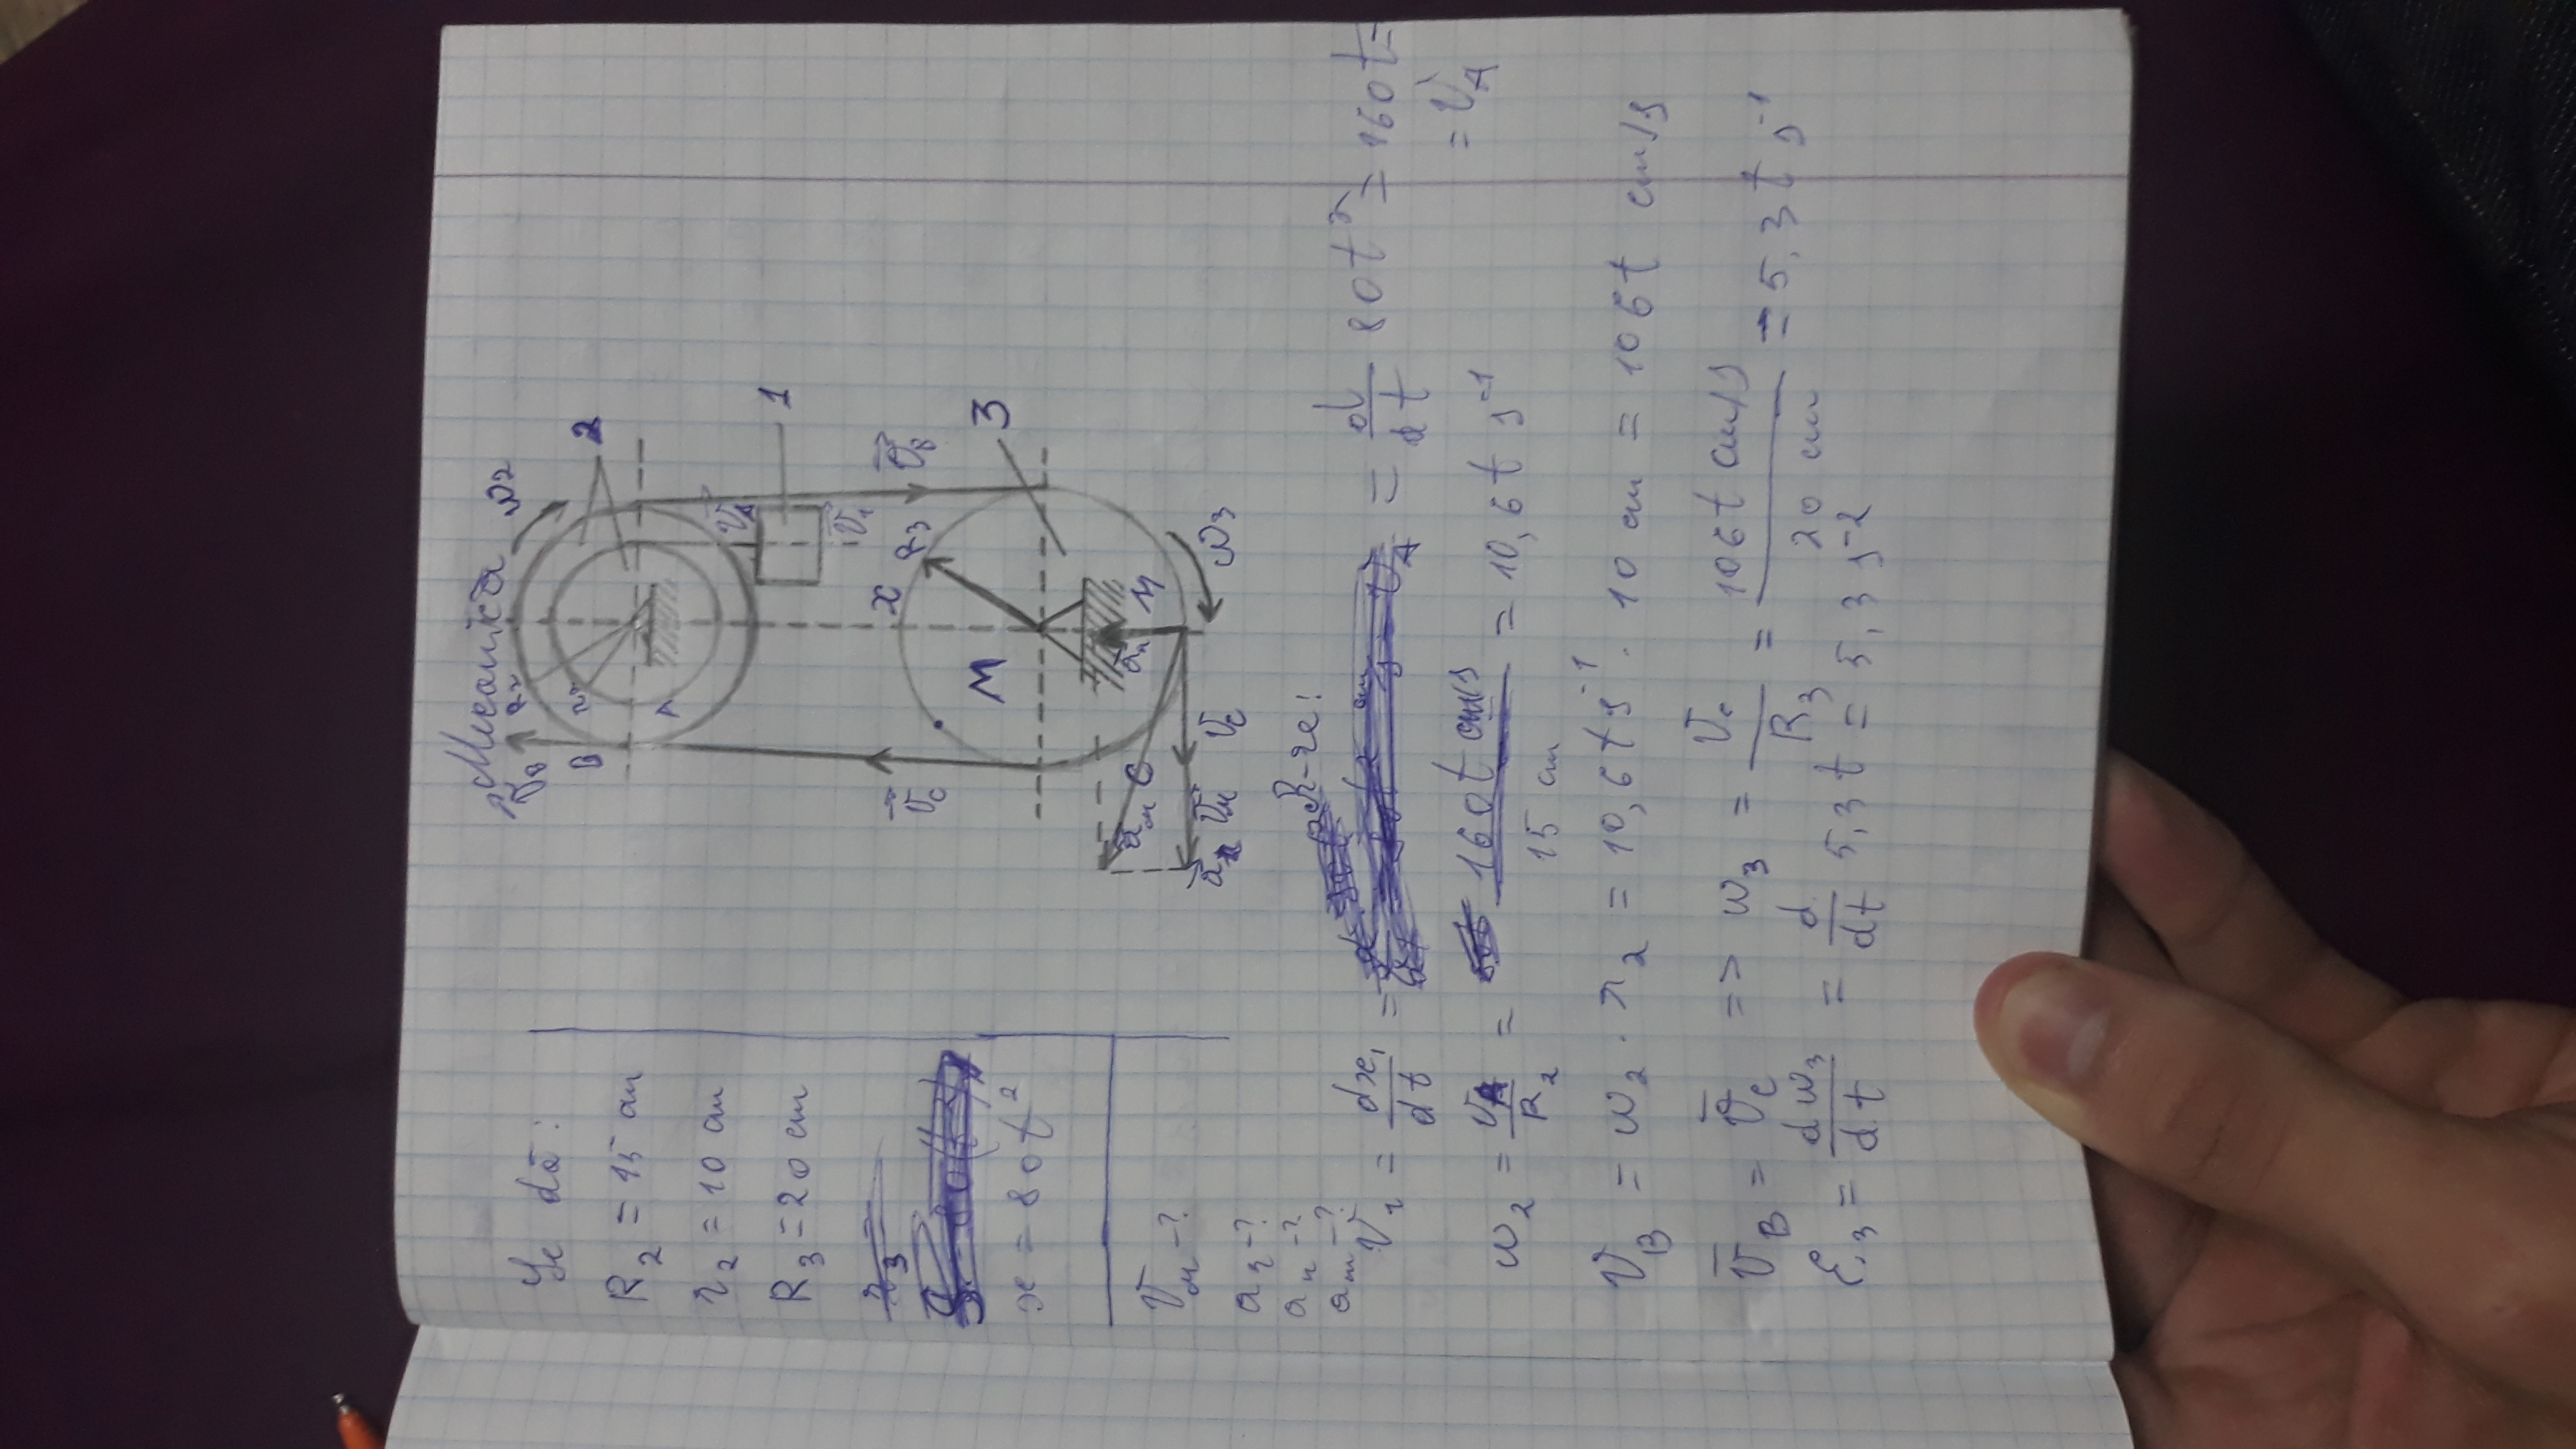 Mecanica
Se dă:
R₂ = 15 cm
r₂ = 10 cm
R₃ = 20 cm
r₃ =
x = 80t²
V_M - ?
a_τ - ?
a_n - ?
a_M - ?
V_B
R₂
ω₂
B
r₂
2
A
V_A
1
V₁
x
V_C
R₃
V_B
M
3
a_M C
a_n
M
V_M
V_C
ω₃
R-re:
V₁ = dx₁/dt = = d/dt 80t² = 160t =
= V_A
ω₂ = V_A/R₂ = 160t cm/s / 15 cm = 10,6t s⁻¹
V_B = ω₂ · r₂ = 10,6t s⁻¹ · 10 cm = 106t cm/s
V̄_B = V̄_C => ω₃ = V_C/R₃ = 106t cm/s / 20 cm = 5,3t s⁻¹
ε₃ = dω₃/dt = d/dt 5,3t = 5,3 s⁻²